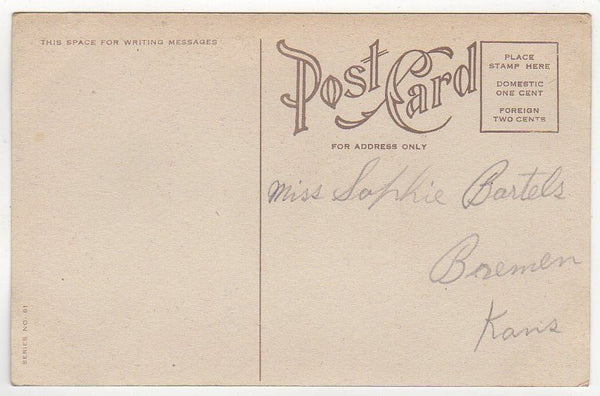 THIS SPACE FOR WRITING MESSAGES
Post Card
PLACE
STAMP HERE
DOMESTIC
ONE CENT
FOREIGN
TWO CENTS
FOR ADDRESS ONLY
Miss Sophie Bartels
Bremen
Kans
SERIES NO. 81